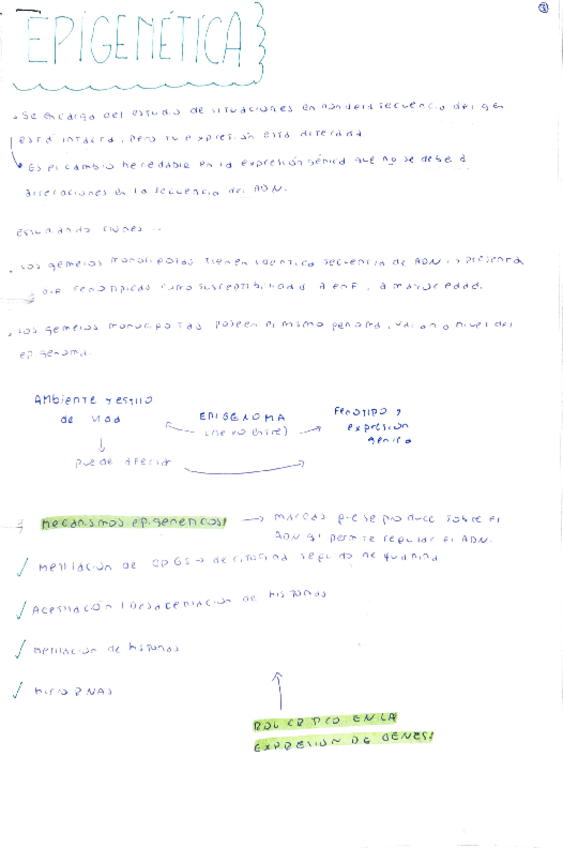 EPIGENÉTICA
• Se encarga del estudio de situaciones en donde la secuencia del gen
está intacta, pero su expresión está alterada
Es el cambio heredable en la expresión génica que no se debe a
alteraciones en la secuencia del ADN.
Estudiando clones...
• Los gemelos monocigotos tienen identica secuencia de ADN, y presenta
dif fenotípicas como susceptibilidad a enf, a mayor edad.
• Los gemelos monocigotas poseen el mismo genoma, varian a nivel del
epigenoma.
Ambiente y estilo
de vida
EPIGENOMA
Fenotipo y
expresion
genica
puede afectar
Mecanismos epigeneticos!
→ marcas que se produce sobre el
ADN q' permite regular el ADN.
✓ Metilación de CPGS → de citosina seguido de guanina
✓ Acetilación / Desacetilación de histonas
✓ Metilación de histonas
✓ Micro RNAS
ROL CRITICO EN LA
EXPRESION DE GENES!